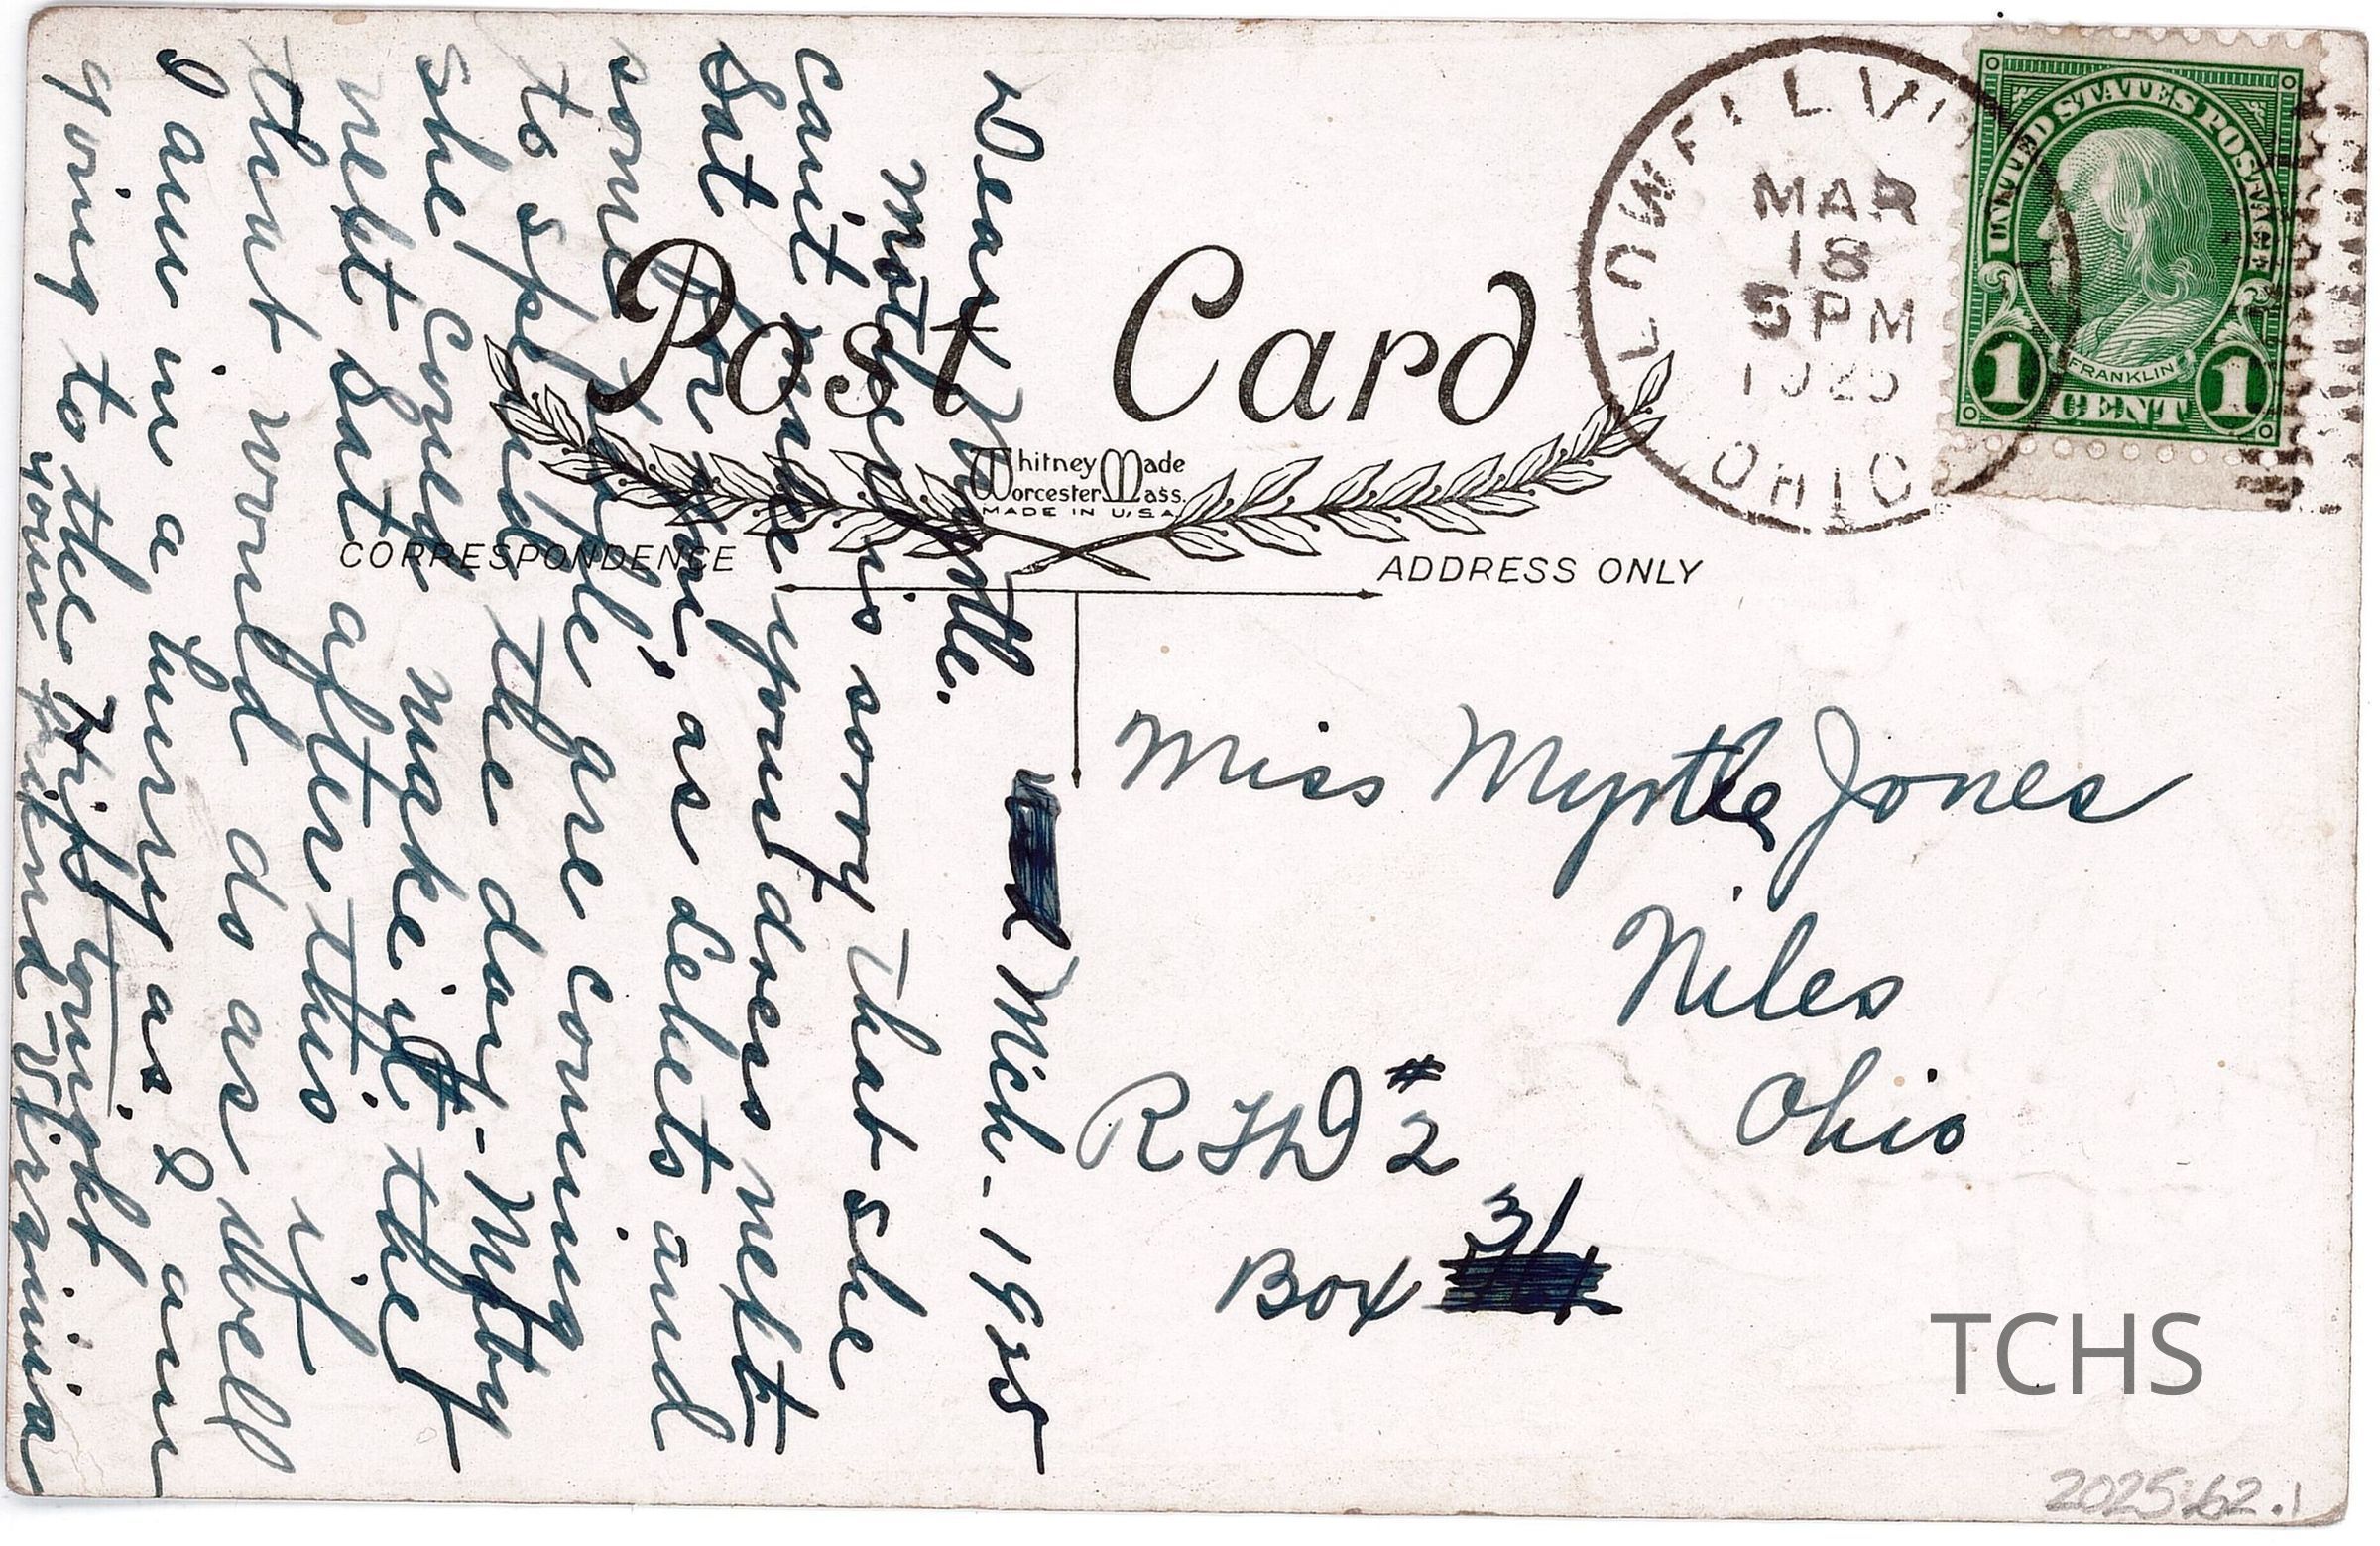 Post Card
Whitney Made
Worcester Mass.
MADE IN U.S.A.
CORRESPONDENCE
ADDRESS ONLY
LOWELLVI
MAR
18
5 PM
1925
OHIO
UNITED STATES POSTAGE
FRANKLIN
1 CENT 1
Mch - 1925
Dear Myrtle.
Mother is sorry that she
can't make your dress next
Sat for as and
some people are coming
to spend the day -
she could make it the
next Sat after this if
that would do as well
I am in a hurry as I am
going to the Hipp tonight
your friend - Virginia
Miss Myrtle Jones
Niles
Ohio
RFD #2
Box 31
TCHS
2025.62.1